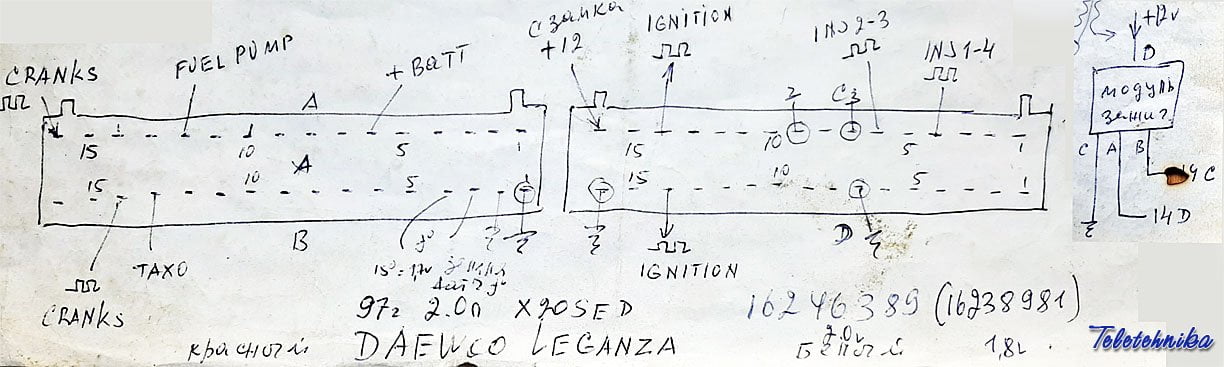 CRANKS
FUEL PUMP
+ BATT
A
15 10 5 1
A
15 10 5 1
B
CRANKS
TAXO
с замка
+12
IGNITION
INJ 2-3
INJ 1-4
2 C3
15 10 5 1
15 10 5 1
D
IGNITION
+12v
D
модуль
зажиг.
C A B
14C
14D
97г 2.0л X20SED
16246389 (16238981)
красный DAEWOO LEGANZA
2.0л
белый
1,8л.
Teletehnika